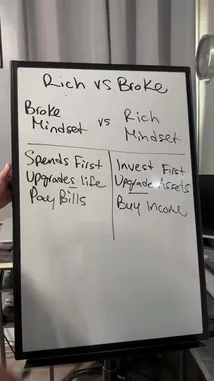 Rich vs Broke
Broke Mindset vs Rich Mindset
Spends First
Upgrades life
Pay Bills
Invest First
Upgrade Assets
Buy Income